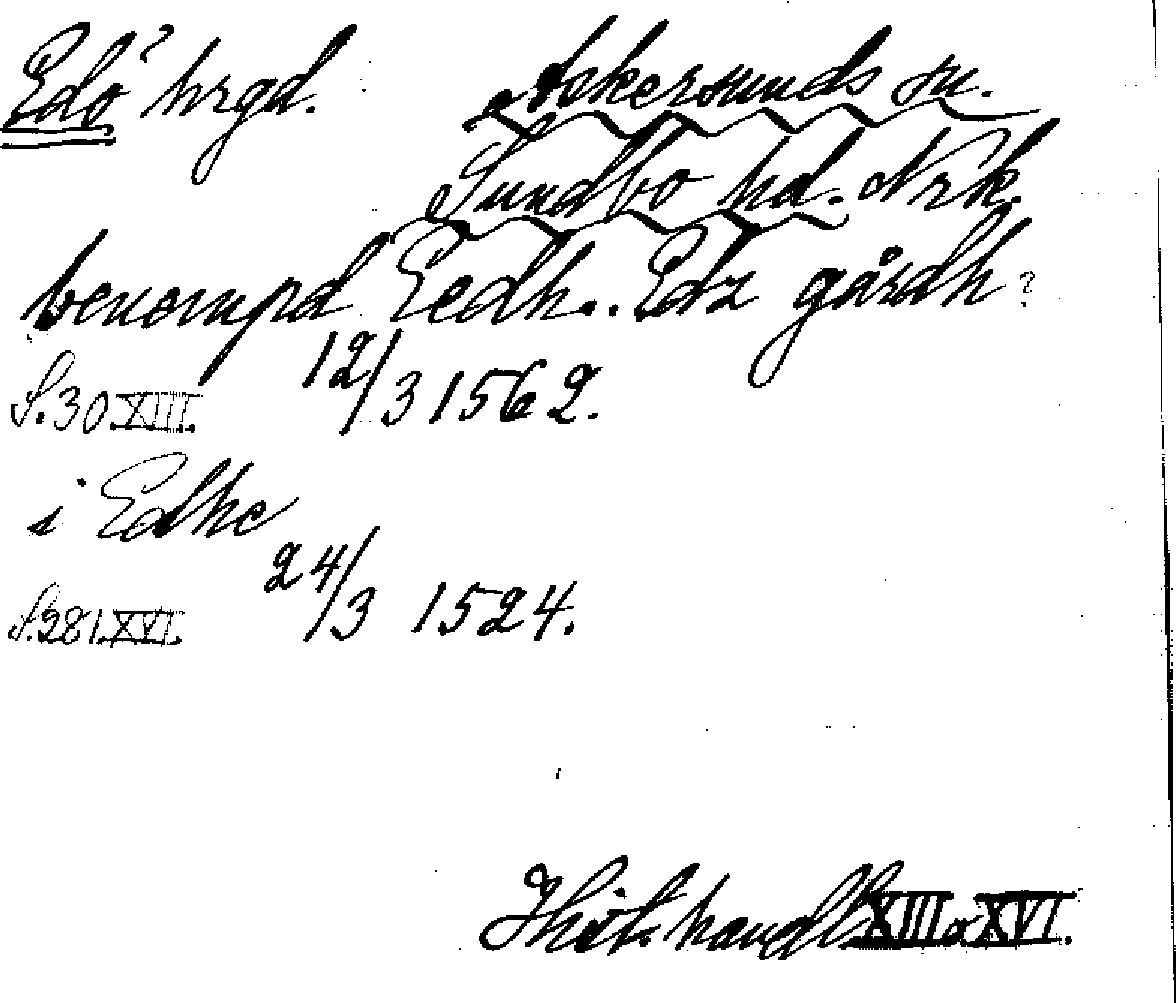 Edö? hrgd. Askersunds sn.
Sundbo hd. Nrk.
benempd Eedh.. Edz gårdh?
12/3 1562.
S. 30 XIII.
i Edhe
24/3 1524.
S. 281 XVI.
Hist. handl. XIII o XVI.